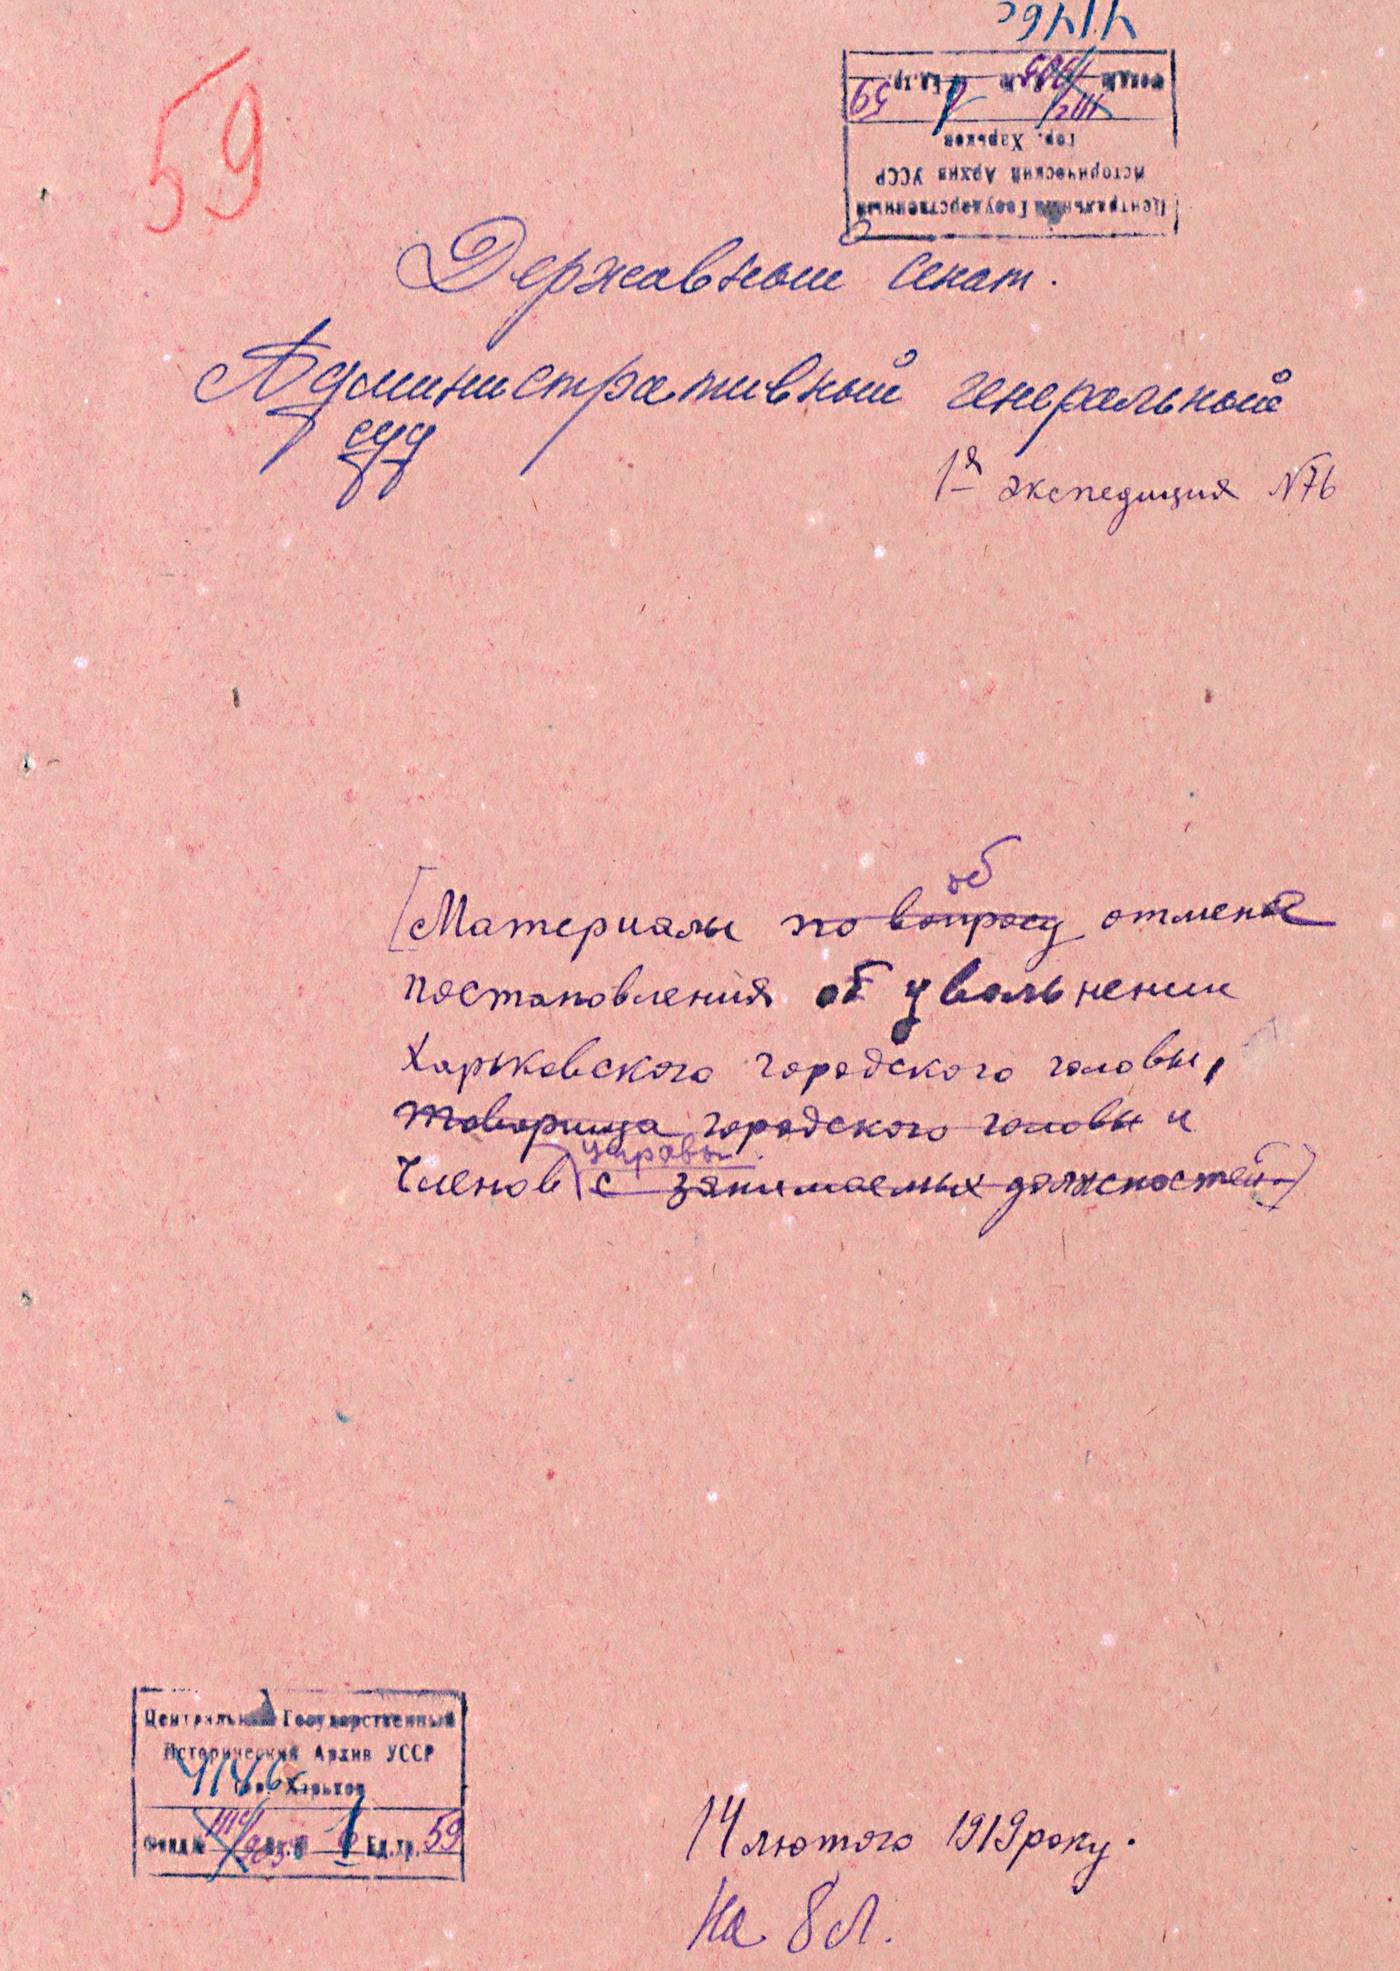 59
Центральный Государственный
Исторический Архив УССР
гор. Харьков
Фонд № Ед.хр. 59
Державный сенат.
Административный генеральный
суд
1я экспедиция N76
об
[Материалы по вопросу отмене
постановления об увольнении
Харьковского городского головы,
товарища городского головы и
управы.
Членов (с занимаемых должностей.)
Центральный Государственный
Исторический Архив УССР
гор. Харьков
Фонд № 1 Ед.хр. 59
14 лютого 1919 року.
На 8 л.